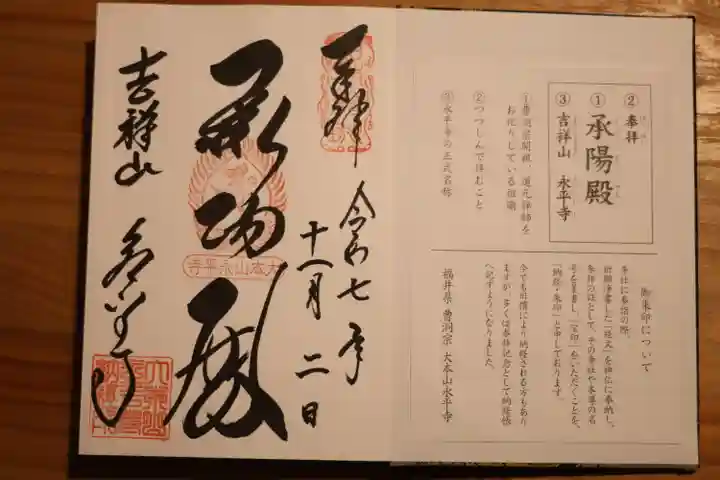 ② 奉拝
① 承陽殿
③ 吉祥山 永平寺
①曹洞宗開祖、道元禅師を
お祀りしている祖廟
②つつしんで拝むこと
③永平寺の正式名称
御朱印について
寺社に参詣の際、
祈願浄書した「経文」を神仏に奉納し、
参拝の証として、その寺社や本尊の名
号を墨書し「宝印」をいただくことを、
「納経・朱印」と申しております。
今でも社情により納経される方もあり
ますが、多くは参拝記念として納経帳
へ記すようになりました。
福井県 曹洞宗 大本山永平寺
奉拝 令和七年
十一月 二日
承陽殿
大本山永平寺
吉祥山 永平寺